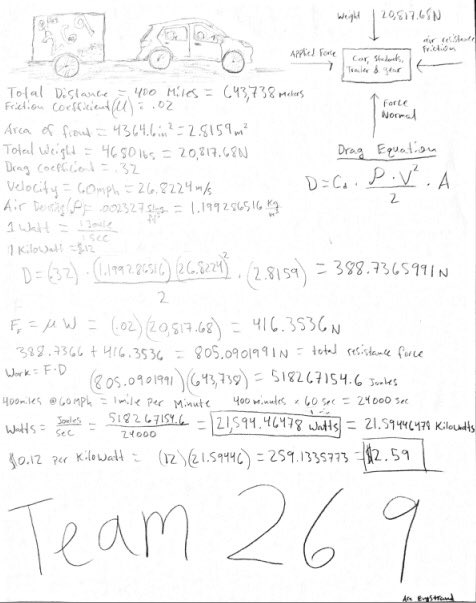 Weight 20,817.68N
air resistance
Friction
Applied Force
Car, Students,
Trailer & gear
Force
Normal
Total Distance = 400 Miles = 643,738 Meters
Friction Coefficient (μ) = .02
Area of front = 4364.6in² = 2.8159m²
Total Weight = 4680lbs = 20,817.68N
Drag Coefficient = .32
Velocity = 60mph = 26.8224 m/s
Air Density (ρ) = .002327 slug/ft³ = 1.199286516 kg/m³
1 Watt = 1 Joule / 1 sec
1 Kilowatt = $.12
Drag Equation
D = Cd · ρ · V² / 2 · A
D = (.32) · (1.199286516)(26.8224)² / 2 · (2.8159) = 388.7365991N
FF = μ W = (.02)(20,817.68) = 416.3536N
388.7366 + 416.3536 = 805.0901991N = total resistance force
Work = F·D
(805.0901991)(643,738) = 518267154.6 Joules
400miles @ 60mph = 1mile per Minute 400 minutes × 60 sec = 24000 sec
Watts = Joules / sec = 518267154.6 / 24000 = 21,594.46478 Watts = 21.59446478 Kilowatts
$0.12 per Kilowatt = (12)(21.59446) = 259.1335773 = $2.59
Team 269